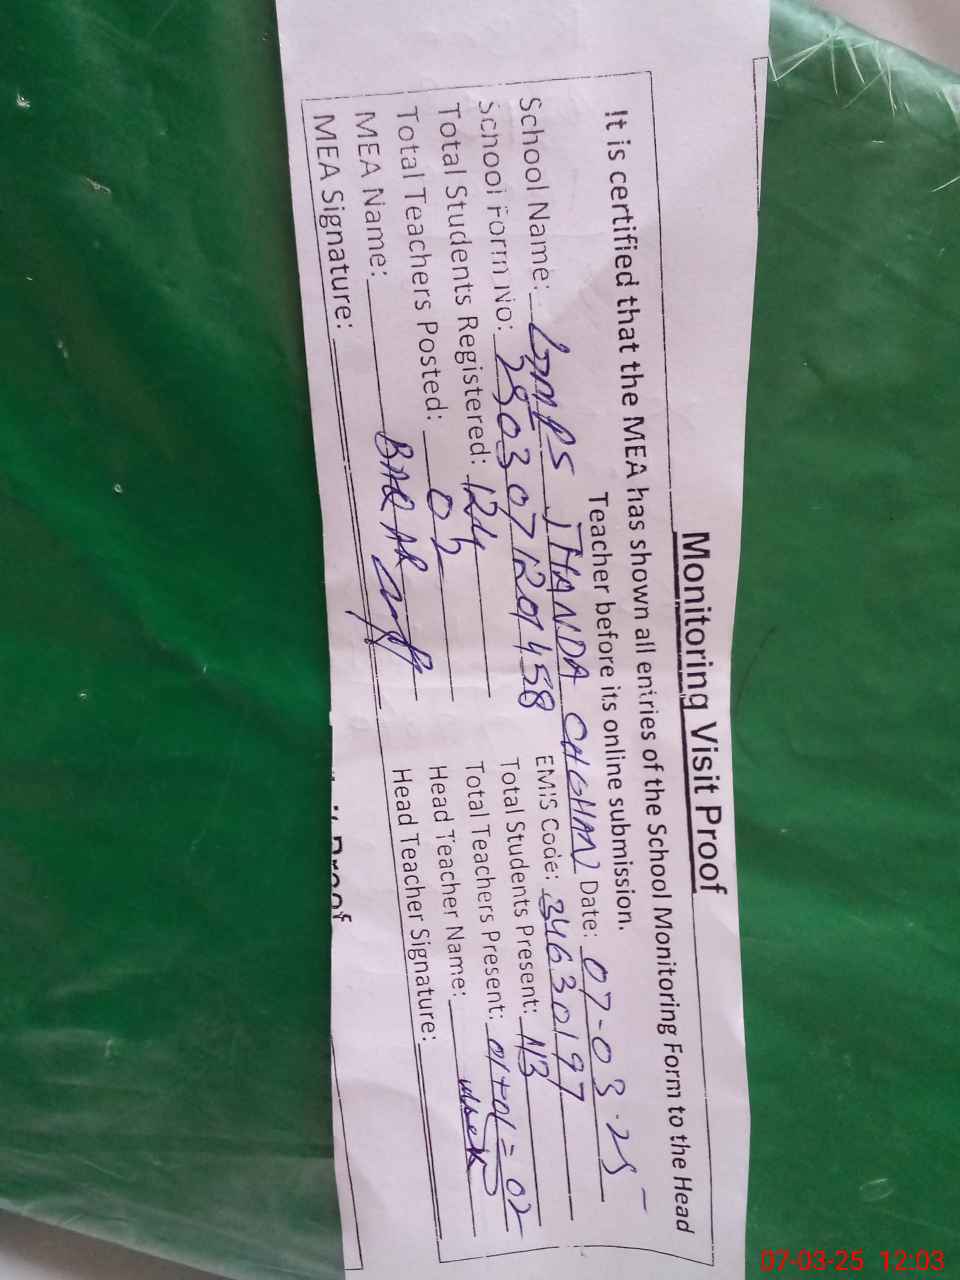 Monitoring Visit Proof
It is certified that the MEA has shown all entries of the School Monitoring Form to the Head
Teacher before its online submission.
School Name: GMPS JHANDA CHGHAN Date: 07-03-25
School Form No: 2503071201458 EMIS Code: 34630197
Total Students Registered: 124 Total Students Present: 113
Total Teachers Posted: 02 Total Teachers Present: 01+01=02
MEA Name: BABAR Head Teacher Name:
MEA Signature: Head Teacher Signature:
Proof
07-03-25 12:03